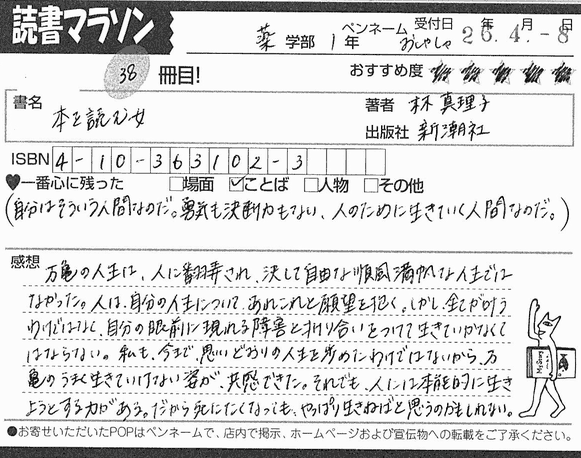 読書マラソン
薬 学部 1 年 ペンネーム おしゃしゃ 受付日 26年 4.月 -8日
38 冊目! おすすめ度
書名 本を読む女
著者 林 真理子
出版社 新潮社
ISBN 4-10-363102-3
♥一番心に残った □場面 ☑ことば □人物 □その他
(自分はそういう人間なのだ。勇気も決断力もない、人のために生きていく人間なのだ。)
感想
万亀の人生は、人に翻弄され、決して自由な順風満帆な人生では
なかった。人は、自分の人生について、あれこれと願望を抱く。しかし、全てが叶う
わけではなく、自分の眼前に現れる障害と折り合いをつけて生きていかなくて
はならない。私も、今まで、思いどおりの人生を歩めたわけではないから、万
亀のうまく生きていけない姿が、共感できた。それでも、人には本能的に生き
ようとする力がある。だから死にたくなっても、やっぱり生きねばと思うのかもしれない。
●お寄せいただいたPOPはペンネームで、店内で掲示、ホームページおよび宣伝物への転載をご了承ください。